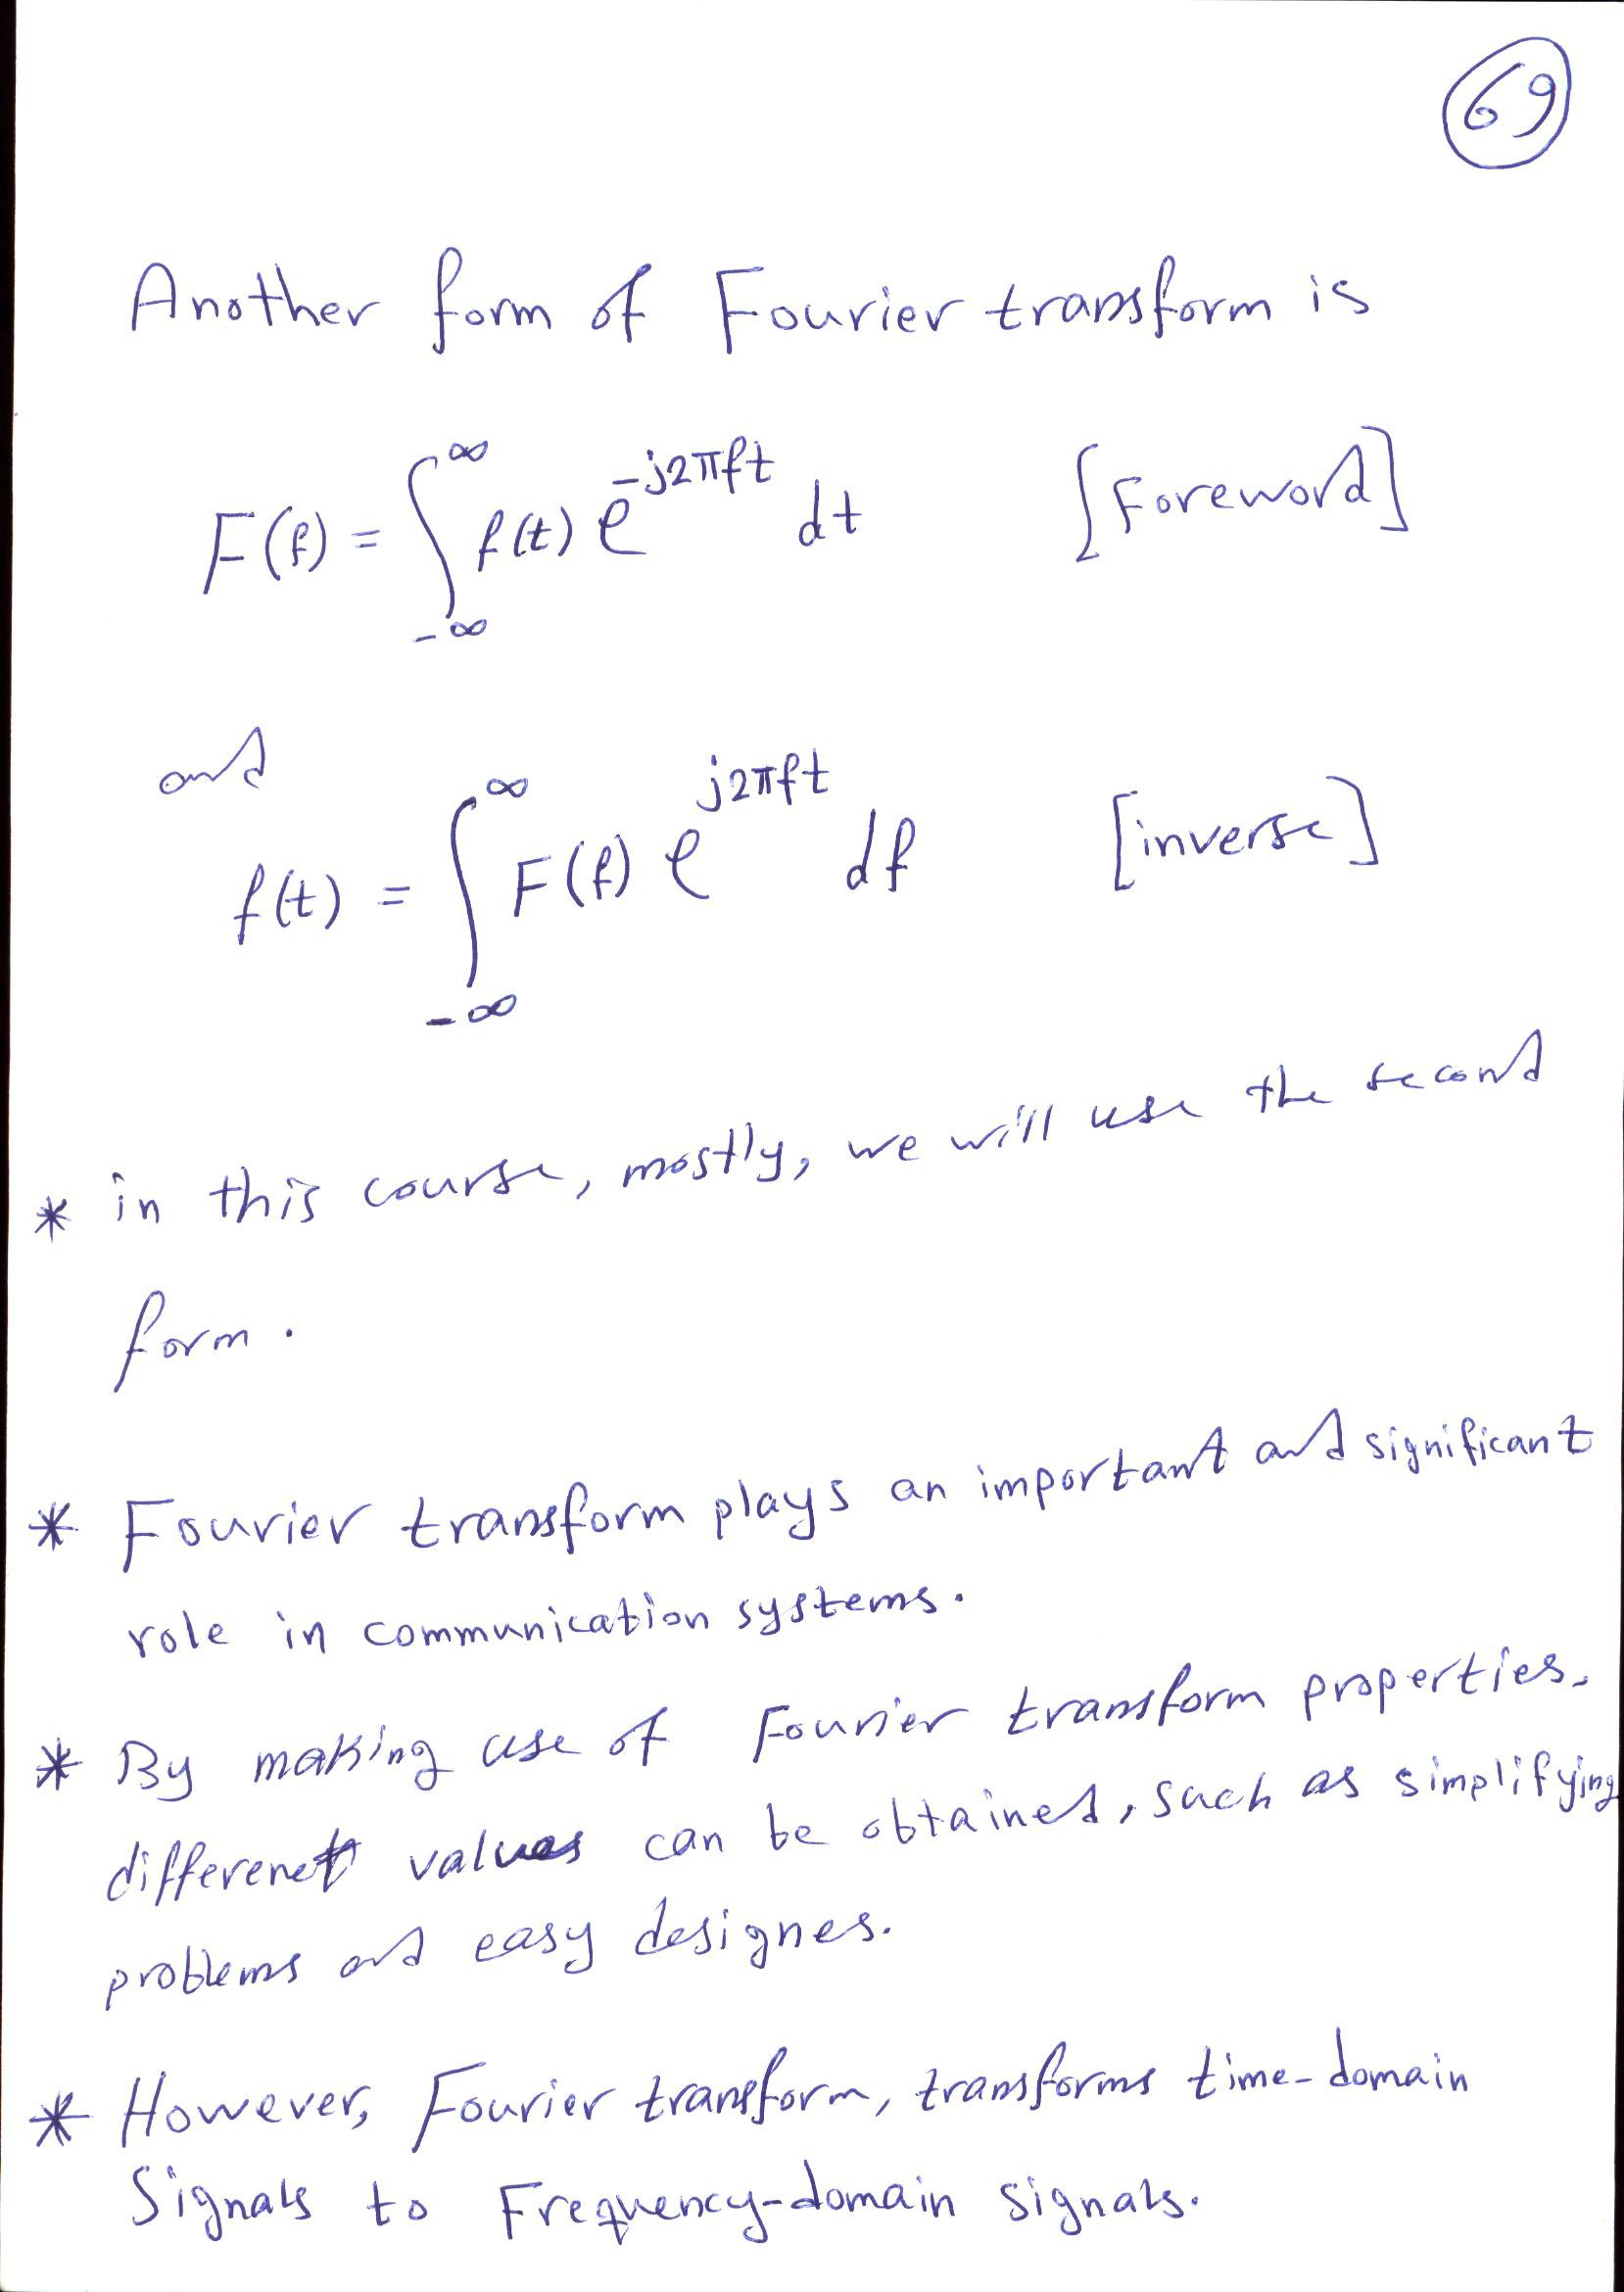 69
Another form of Fourier transform is
F(f) = ∫_{-∞}^{∞} f(t) e^{-j2πft} dt [Foreword]
and
f(t) = ∫_{-∞}^{∞} F(f) e^{j2πft} df [inverse]
* in this course, mostly, we will use the second
form.
* Fourier transform plays an important and significant
role in communication systems.
* By making use of Fourier transform properties,
different values can be obtained, such as simplifying
problems and easy designes.
* However, Fourier transform, transforms time-domain
Signals to Frequency-domain signals.